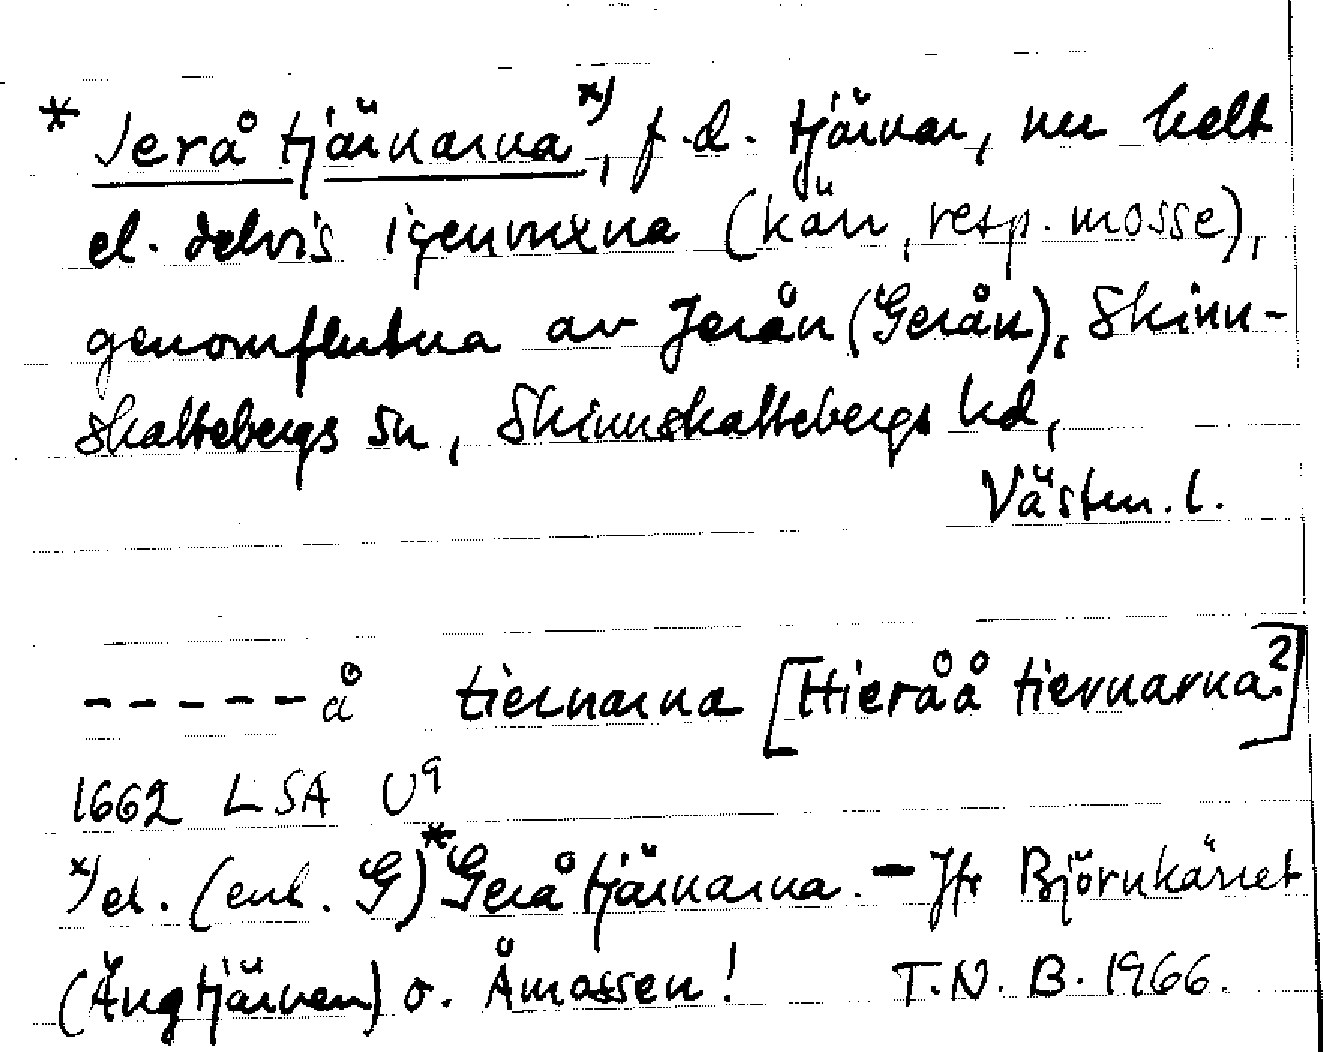 * Jerå tjärnarna x), f.d. tjärnar, nu helt
el. delvis igenvuxna (kärr, resp. mosse),
genomflutna av Jerån (Gerån), Skinn-
skattebergs sn, Skinnskattebergs hd,
Västm. l.
- - - - - å tiernarna [Hieråå tiernarna?]
1662 LSA U9
x) el. (enl. G) * Gerå tjärnarna. - Jfr Björnkärret
(Ängtjärnen) o. Åmossen! T.N.B. 1966.